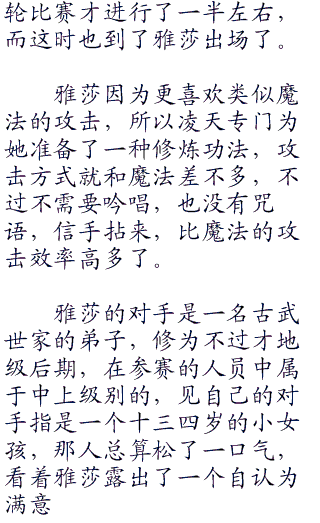 轮比赛才进行了一半左右，
而这时也到了雅莎出场了。
雅莎因为更喜欢类似魔
法的攻击，所以凌天专门为
她准备了一种修炼功法，攻
击方式就和魔法差不多，不
过不需要吟唱，也没有咒
语，信手拈来，比魔法的攻
击效率高多了。
雅莎的对手是一名古武
世家的弟子，修为不过才地
级后期，在参赛的人员中属
于中上级别的，见自己的对
手指是一个十三四岁的小女
孩，那人总算松了一口气，
看着雅莎露出了一个自认为
满意